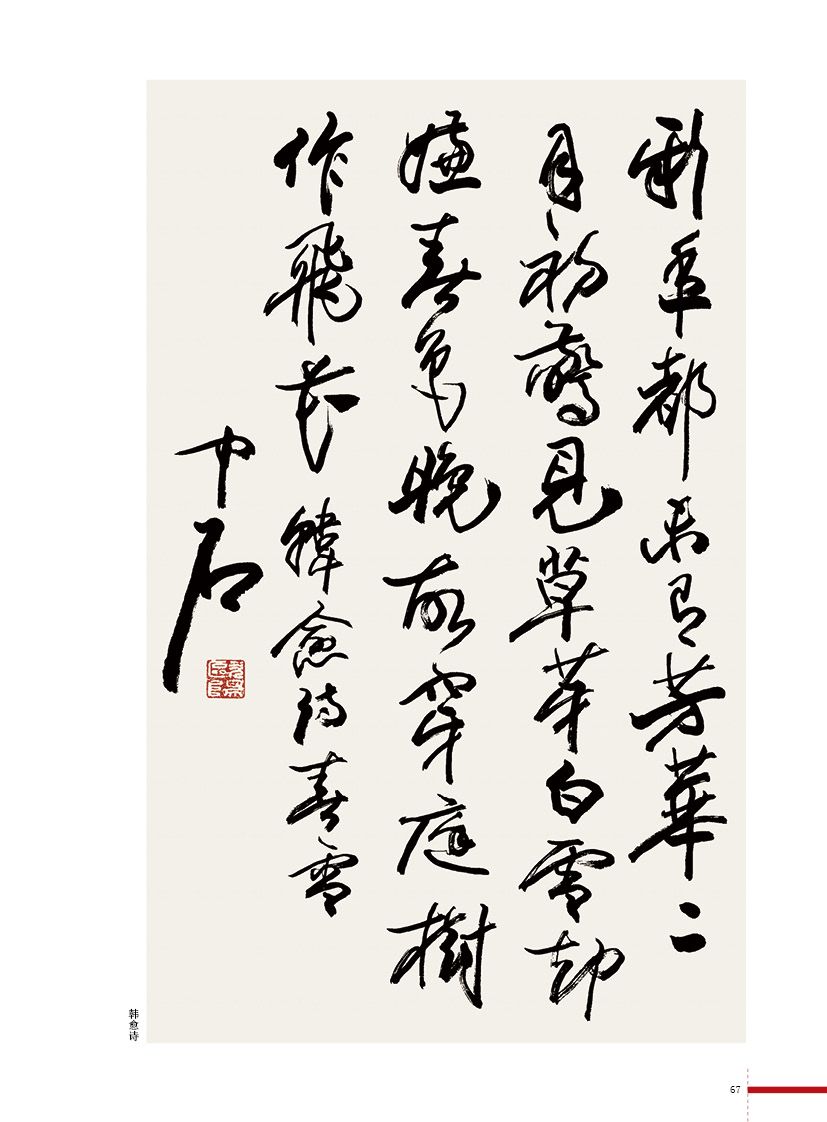 新年都未有芳華二
月初驚見草芽白雪却
嫌春色晚故穿庭樹
作飛花 韓愈詩春雪
中石
韩愈诗
67